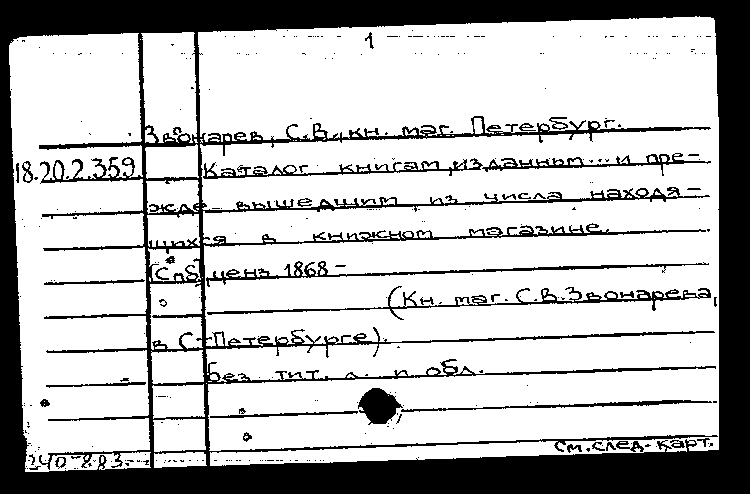 1
Звонарев, С.В., кн. маг. Петербург.
18.20.2.359. Каталог книгам, изданным... и пре-
жде вышедшим, из числа находя-
щихся в книжном магазине.
[СПб], ценз. 1868-
(Кн. маг. С.В. Звонарева,
в С-Петербурге).
Без тит. л. и обл.
240-883.
См. след. карт.